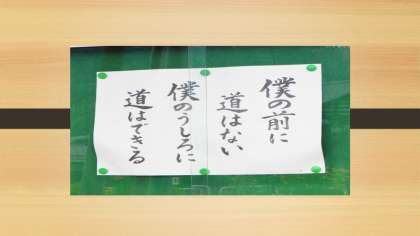 僕の前に
道はない
僕のうしろに
道はできる